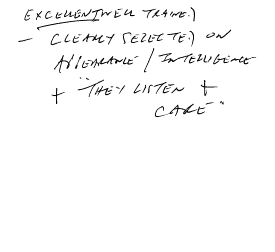 EXCELLENT/WELL TRAINED
- CLEARLY SELECTED ON
APPEARANCE / INTELLIGENCE
+ "THEY LISTEN +
CARE"